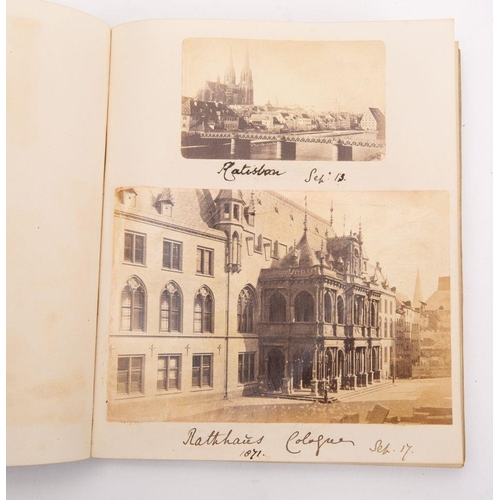 Ratisbon Sep. 13.
Rathhaus Cologne Sep. 17.
1871.